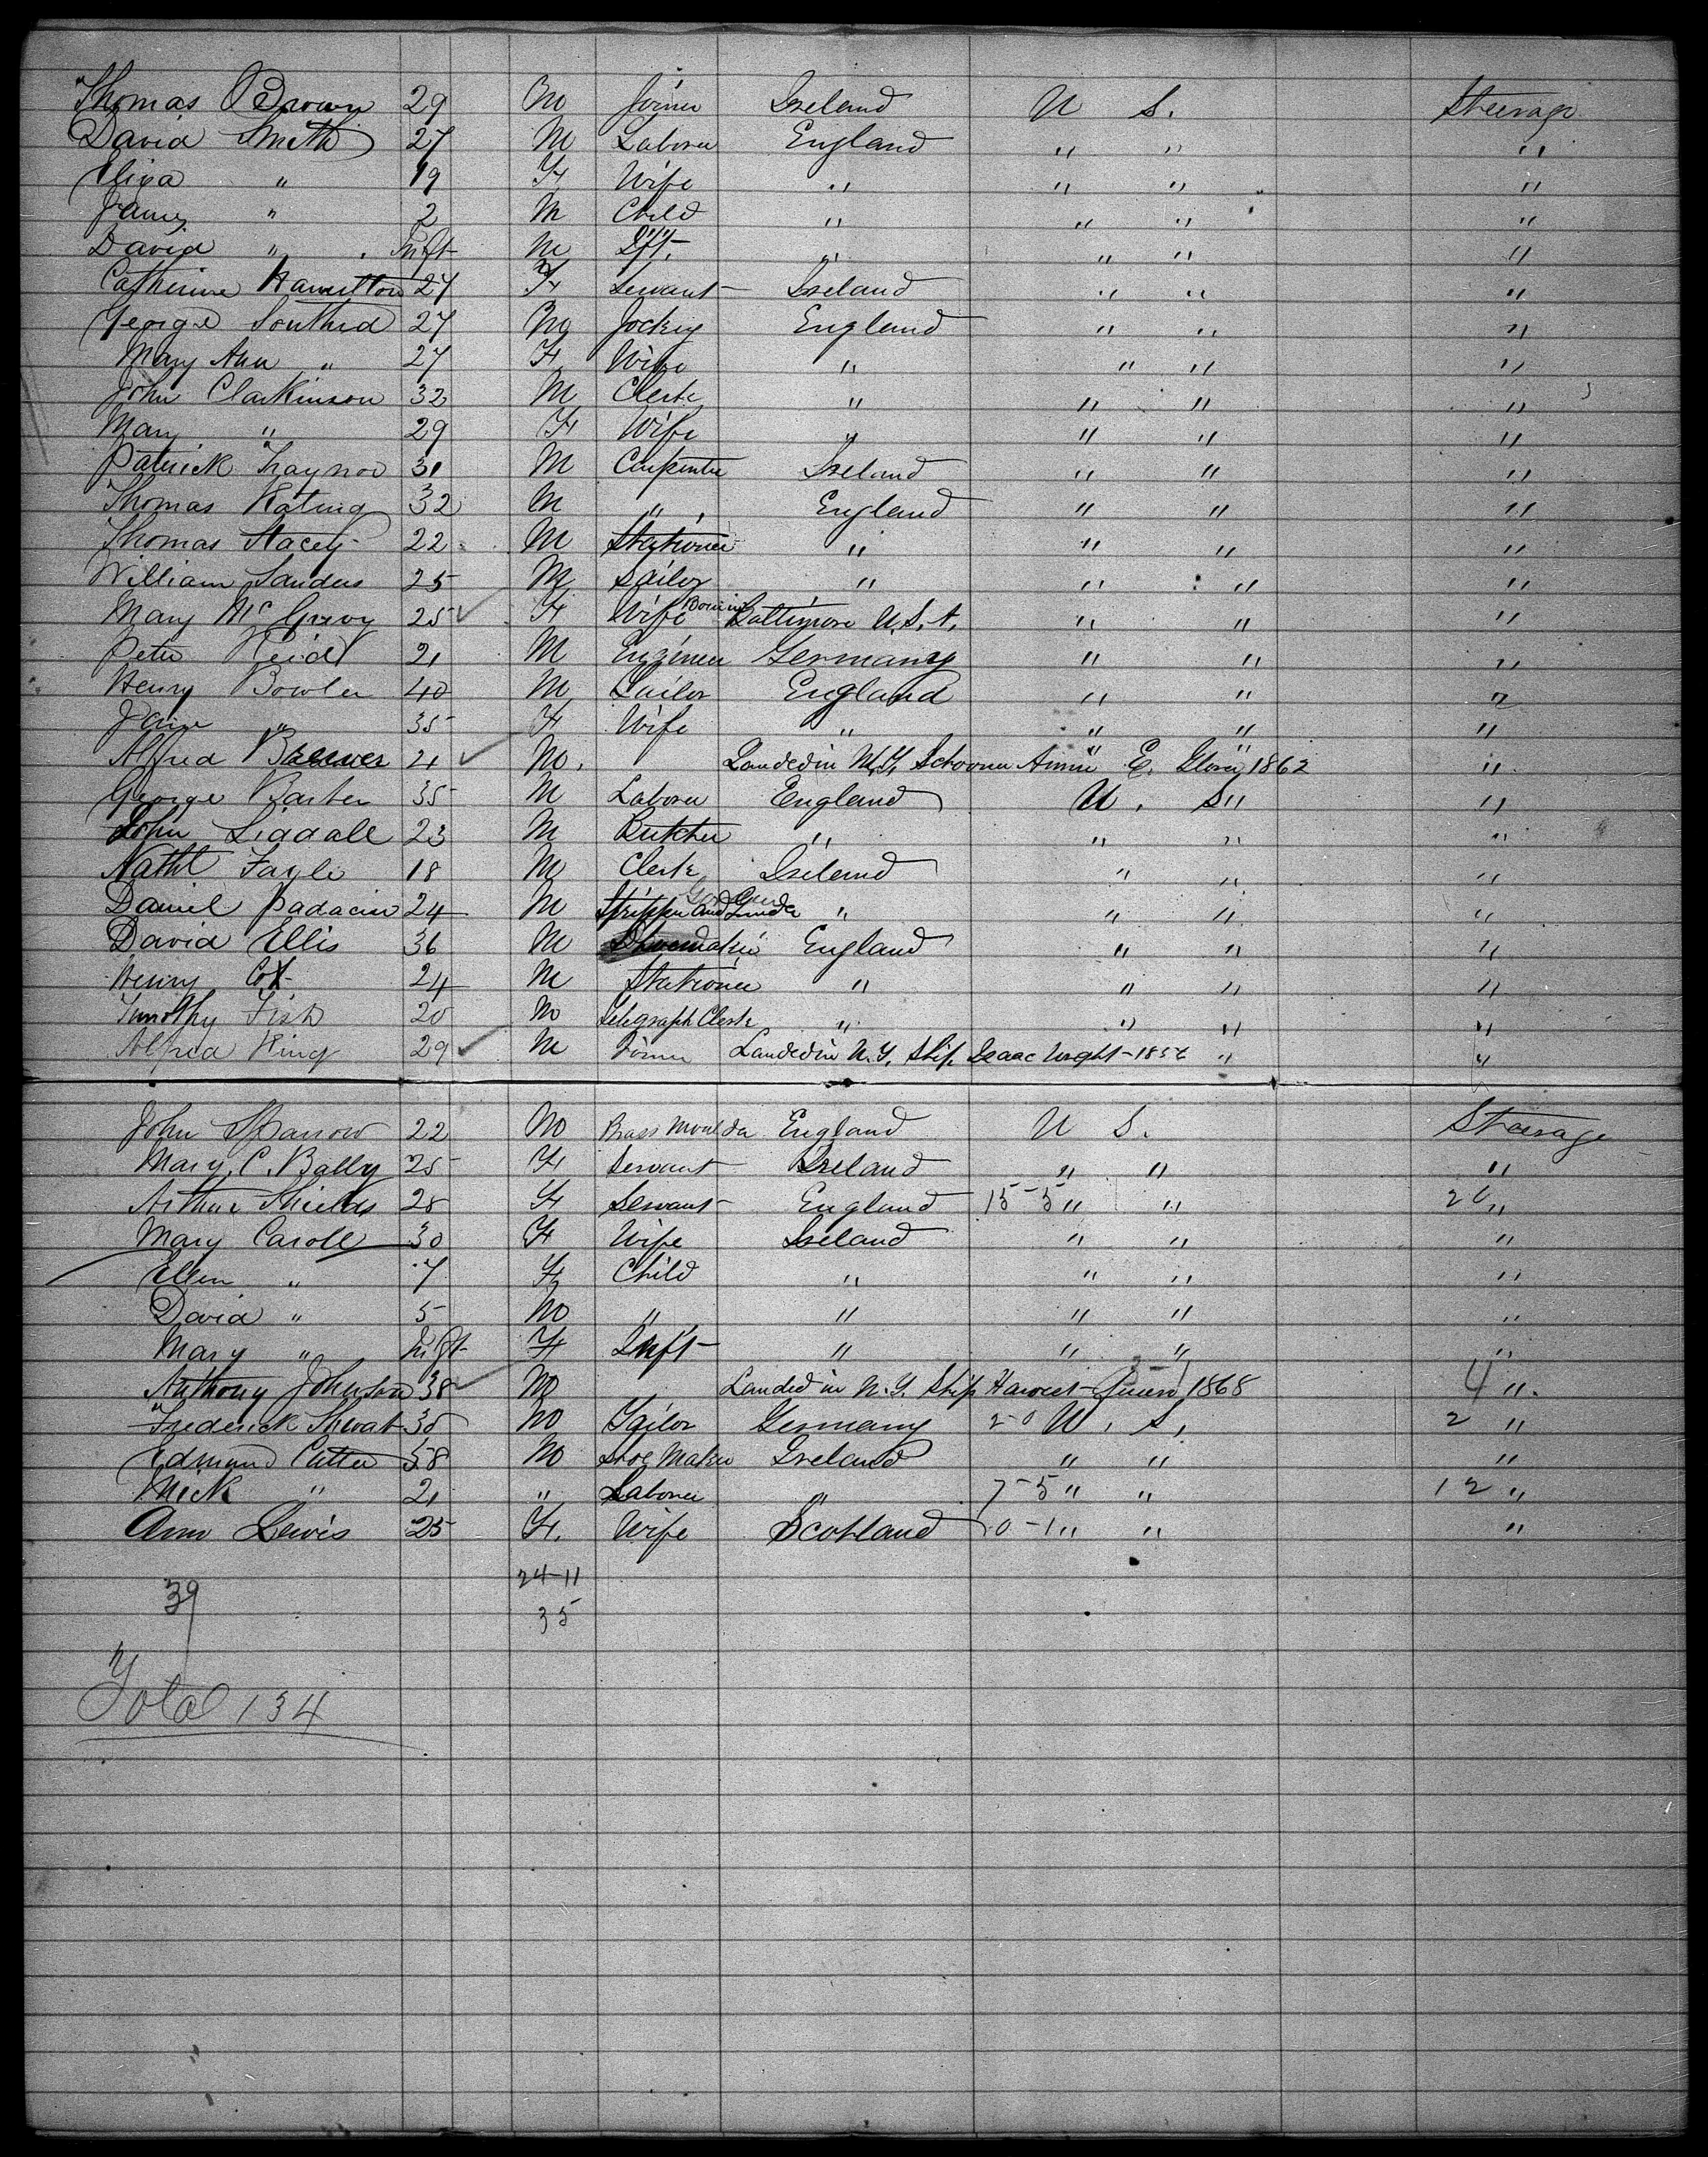 Thomas Brown 29 M Joiner Ireland U S. Steerage
David Smith 27 M Laborer England " " "
Eliza " 19 F Wife " " " "
James " 2 M Child " " " "
David " Inft M Ift. " " " "
Catherine Hamilton 27 F Servant Ireland " " "
George Southid 27 M Jockey England " " "
Mary Ann " 27 F Wife " " " "
John Clarkinson 32 M Clerk " " " "
Mary " 29 F Wife " " " "
Patrick Traynor 31 M Carpenter Ireland " " "
Thomas Kating 32 M " England " " "
Thomas Stacey 22 M Stationer " " " "
William Sanders 25 M Sailor " " " "
Mary Mc 25 F Wife Born in Baltimore U.S.A. " " "
Peter Reid 21 M Engineer Germany " " "
Henry Bowler 40 M Tailor England " " "
Jane " 35 F Wife " " " "
Alfred Brewer 21 M. Landed in N.Y. Schooner Annie E. Glover 1862 " " "
George Barber 35 M Laborer England U. S " "
John Liddall 23 M Butcher " " " "
Nathl Fayle 18 M Clerk Ireland " " "
Daniel 24 M Stripper and Grinder " " " "
David Ellis 36 M Shoemaker England " " "
Henry Cox 24 M Stationer " " " "
Timothy Fish 20 M Telegraph Clerk " " " "
Alfred King 29 M Joiner Landed in N.Y. Ship Isaac Wright - " "
John Sparrow 22 M Brass Moulder England U S. Steerage
Mary C. Bally 25 F Servant Ireland " " "
Arthur Shields 28 F Servant England 15-5 " " 20 "
Mary Caroll 30 F Wife Ireland " " "
Ellen " 7 F Child " " " "
David " 5 M " " " " "
Mary " Inft F Inft " " " "
Anthony Johnson 38 M Landed in N.Y. Ship Harvest Queen 1868 4 "
Frederick 30 M Tailor Germany 2-0 U. S. 2 "
Edmund Cutter 58 M Shoe Maker Ireland " " "
Mick " 21 " Laborer " 7-5 " " 12 "
Ann Lewis 25 F. Wife Scotland 0-1 " " "
24-11
39
35
Total 134